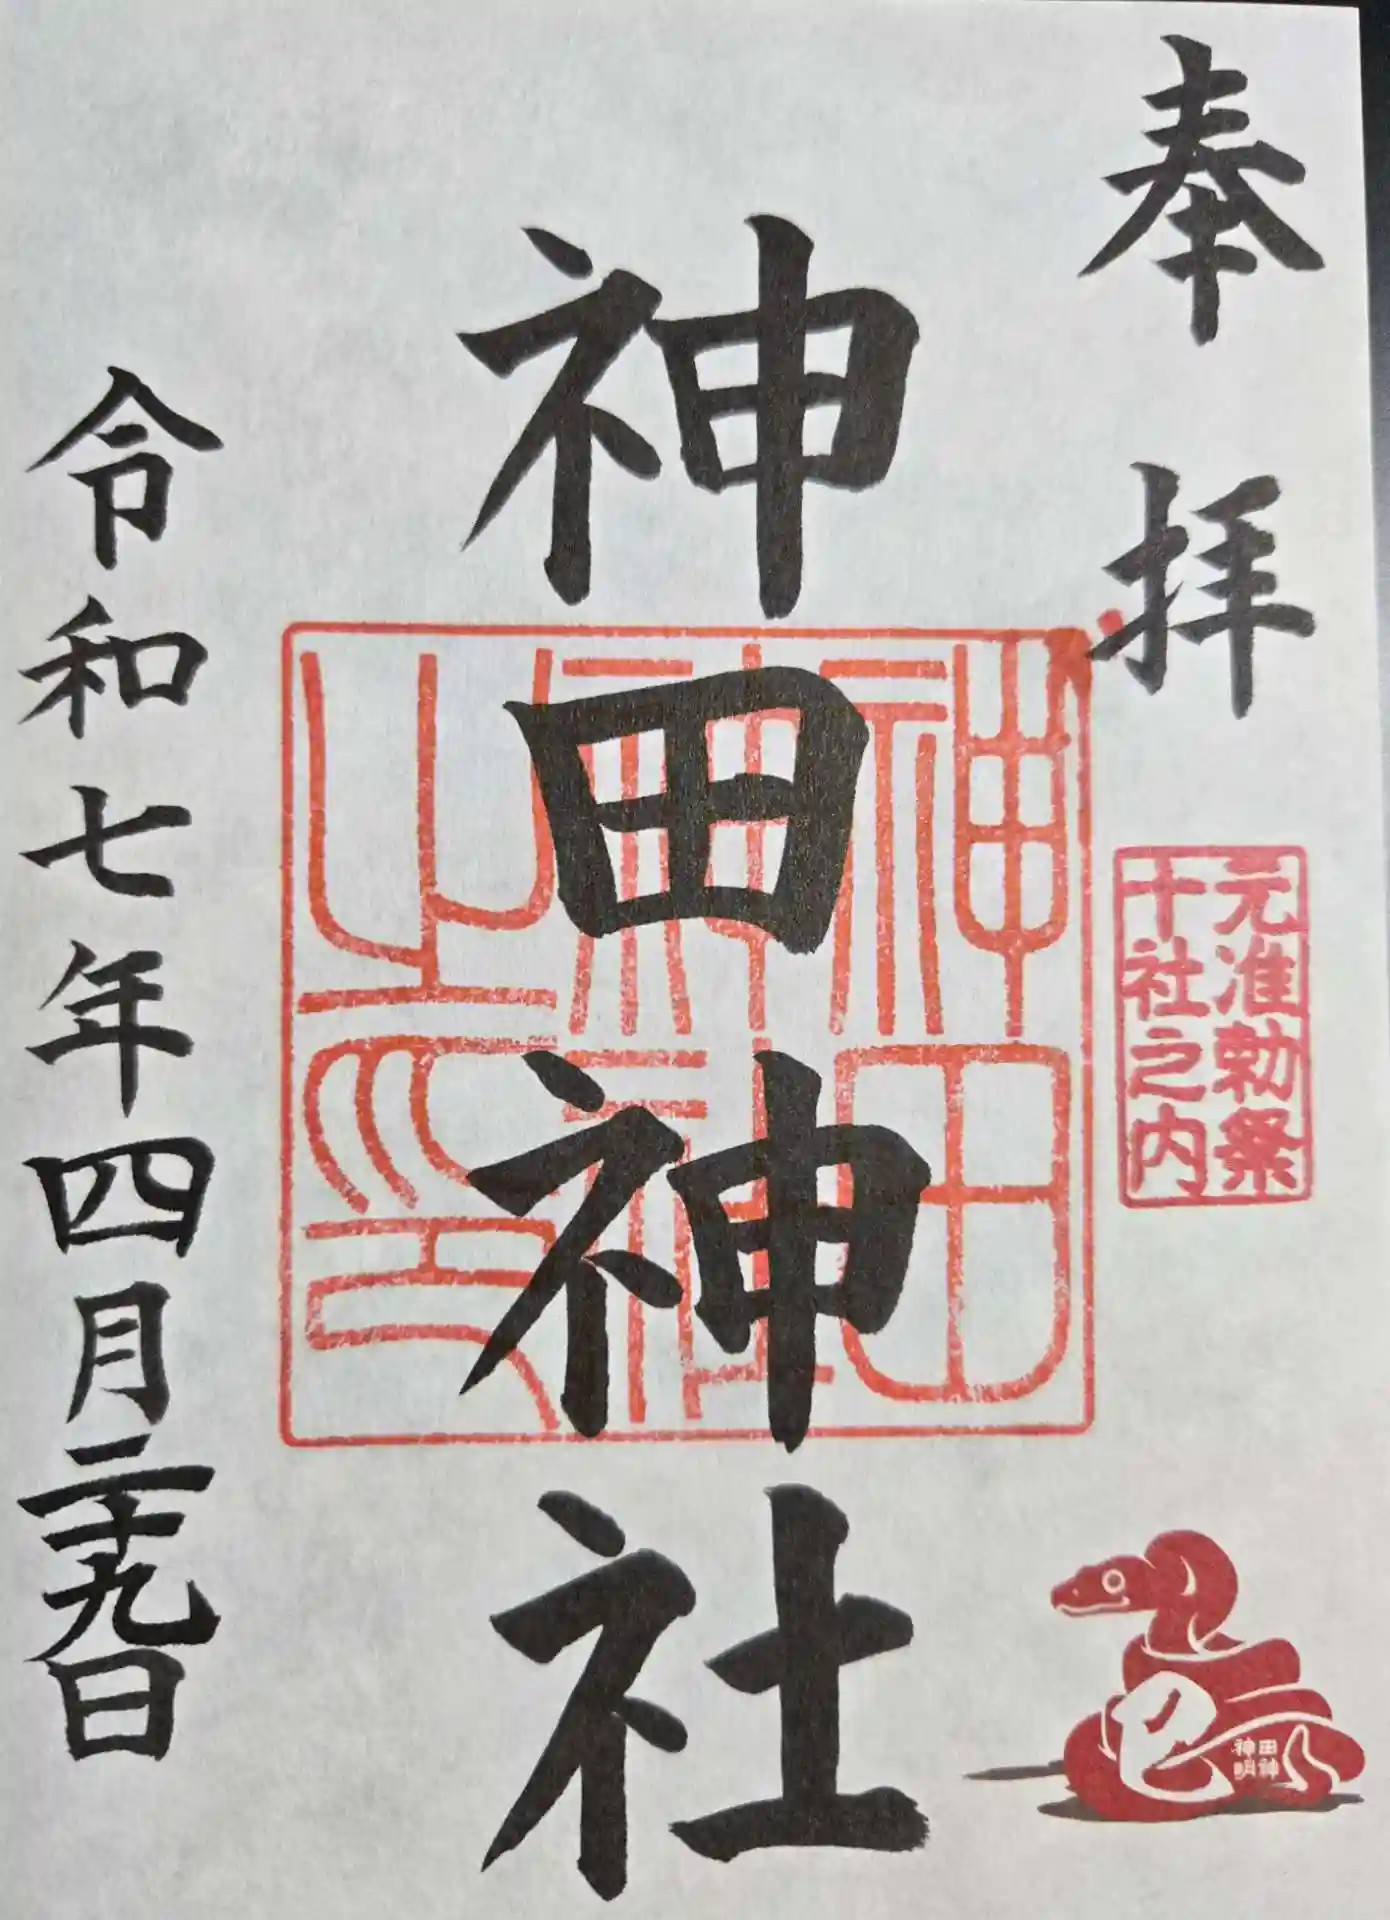 奉拝
元准勅祭
十社之内
巳
田神
神明
神田神社
神田
神社
之印
令和七年四月二十九日